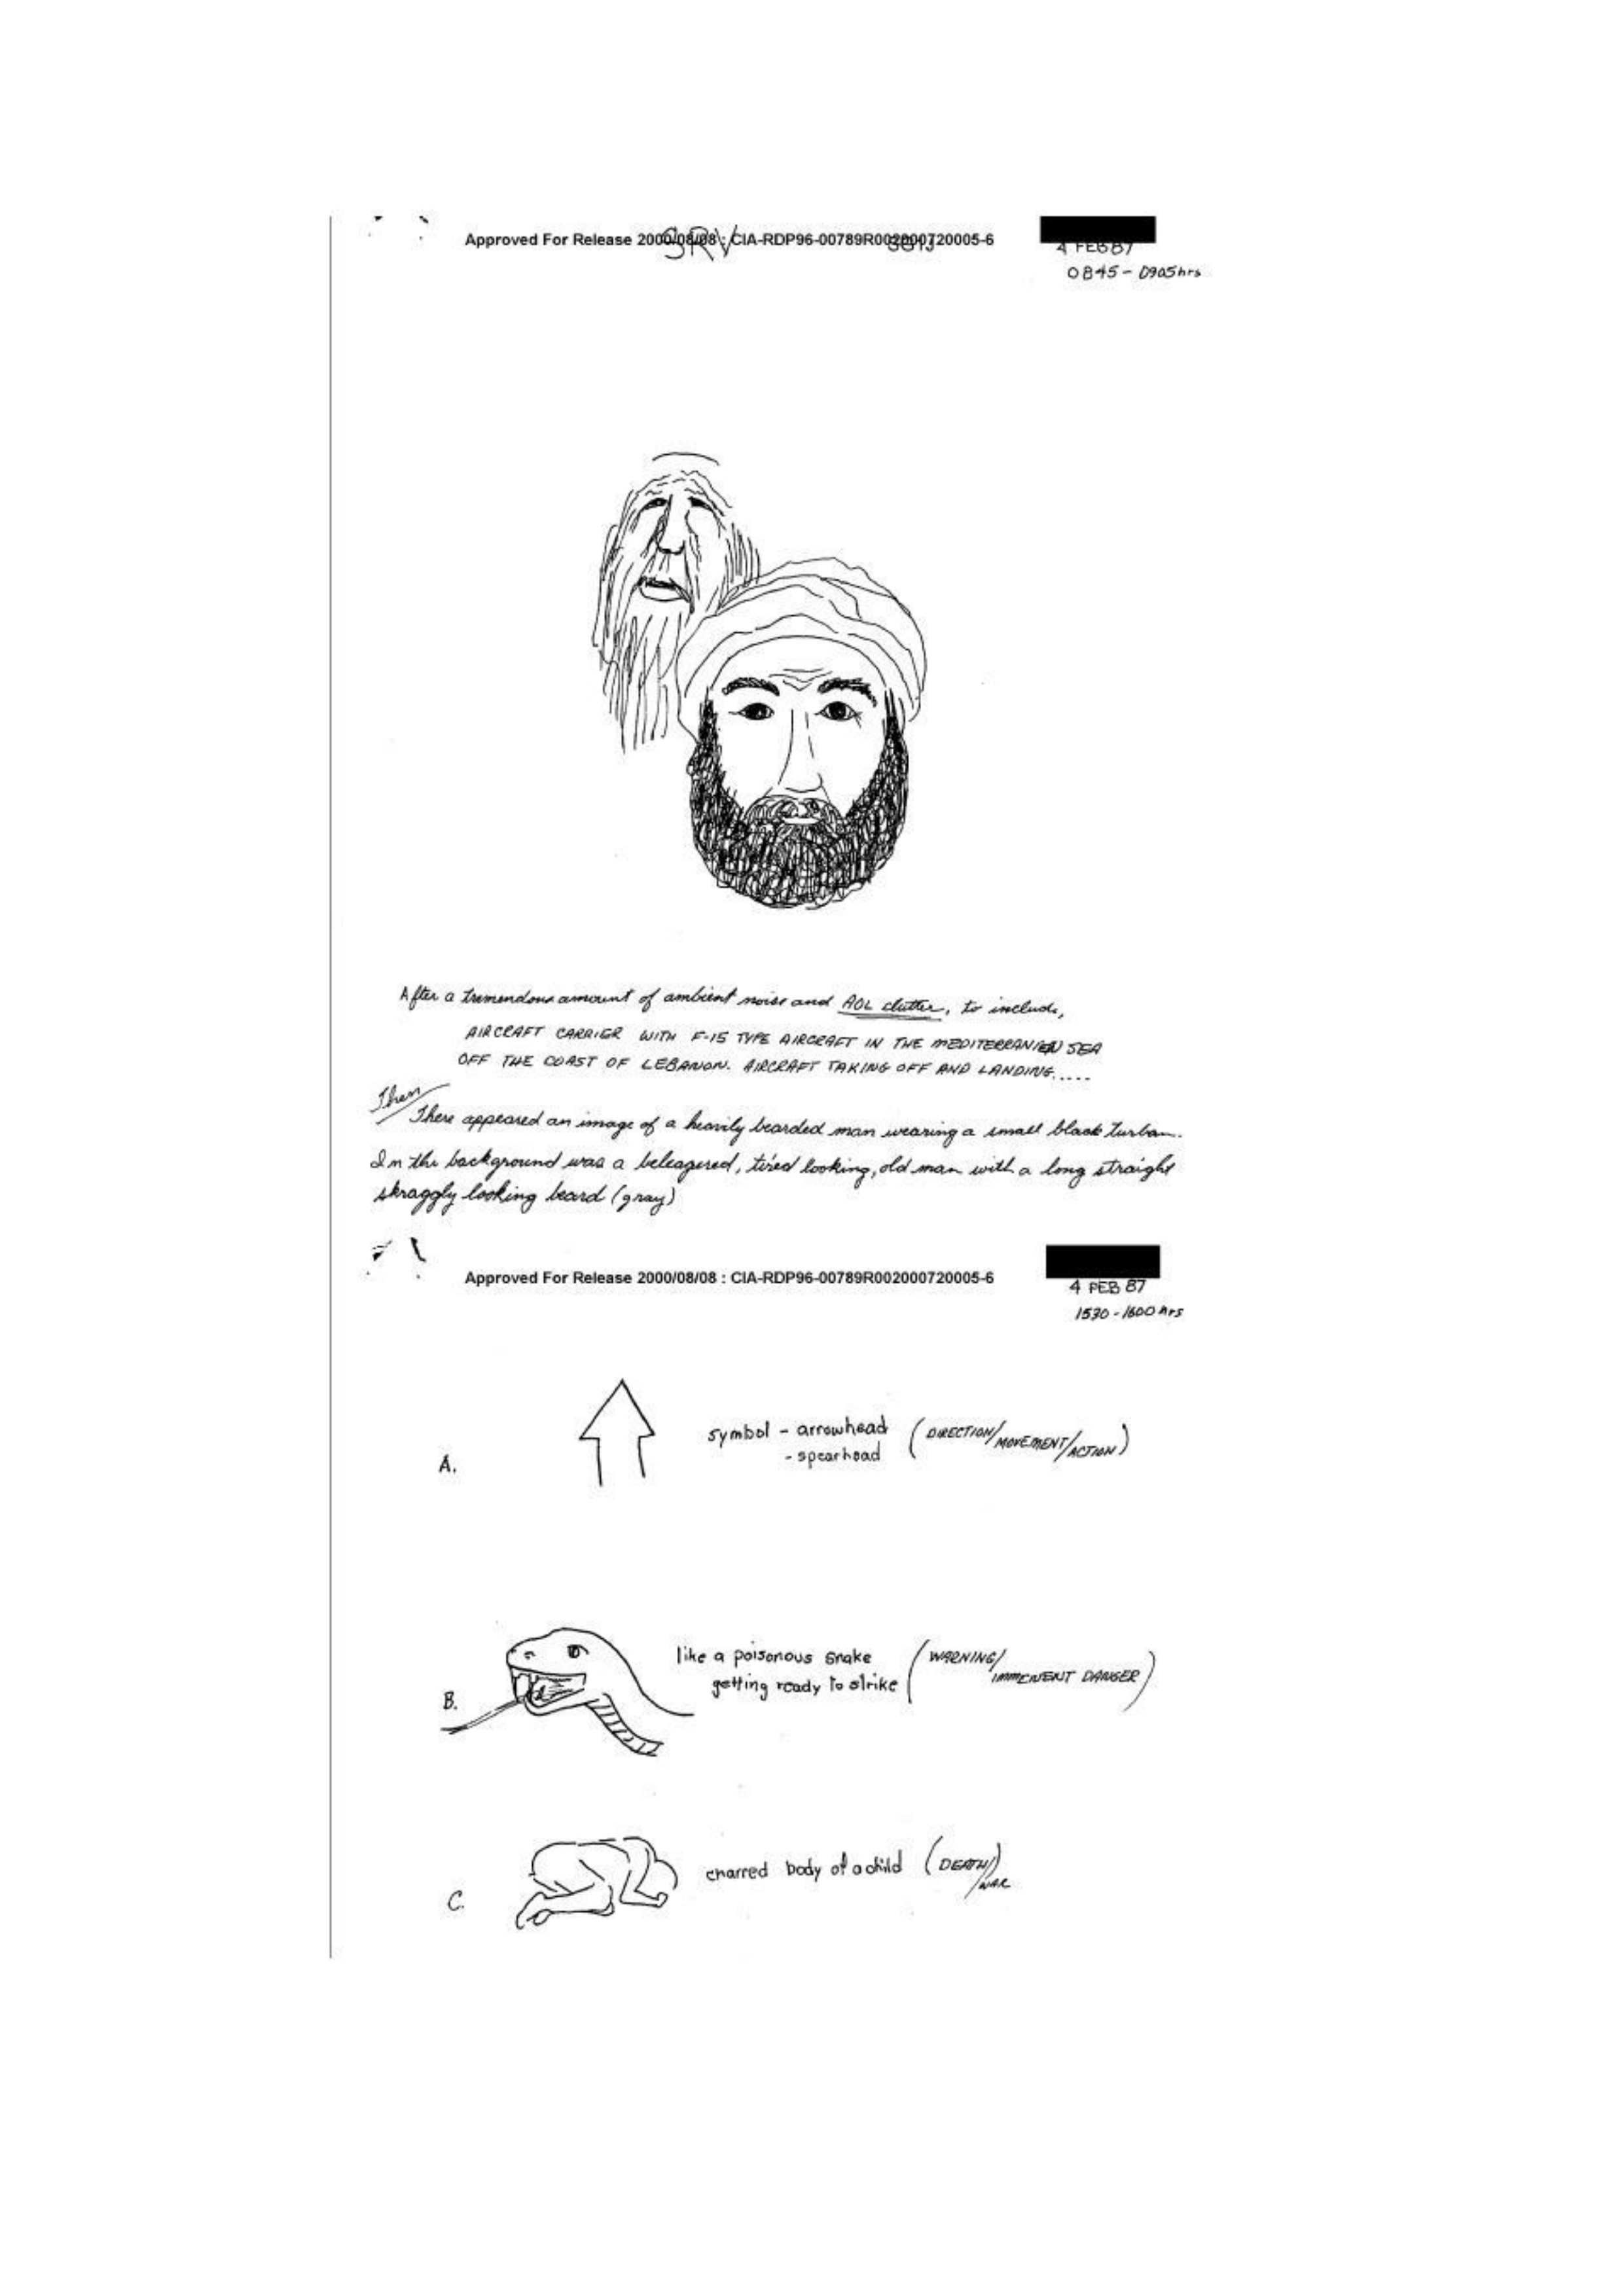 Approved For Release 2000/08/08 : CIA-RDP96-00789R002000720005-6
SRV
4 FEB 87
0845 - 0905 hrs
After a tremendous amount of ambient noise and AOL clutter, to include,
AIRCRAFT CARRIER WITH F-15 TYPE AIRCRAFT IN THE MEDITERRANIEN SEA
OFF THE COAST OF LEBANON. AIRCRAFT TAKING OFF AND LANDING.....
Then/
There appeared an image of a heavily bearded man wearing a small black turban.
In the background was a beleagered, tired looking, old man with a long straight
skraggly looking beard (gray)
Approved For Release 2000/08/08 : CIA-RDP96-00789R002000720005-6
4 FEB 87
1530 - 1600 hrs
A.
symbol - arrowhead (DIRECTION/MOVEMENT/ACTION)
- spearhead
B.
like a poisonous snake (WARNING/
getting ready to strike IMMENENT DANGER)
C.
charred body of a child (DEATH/WAR)